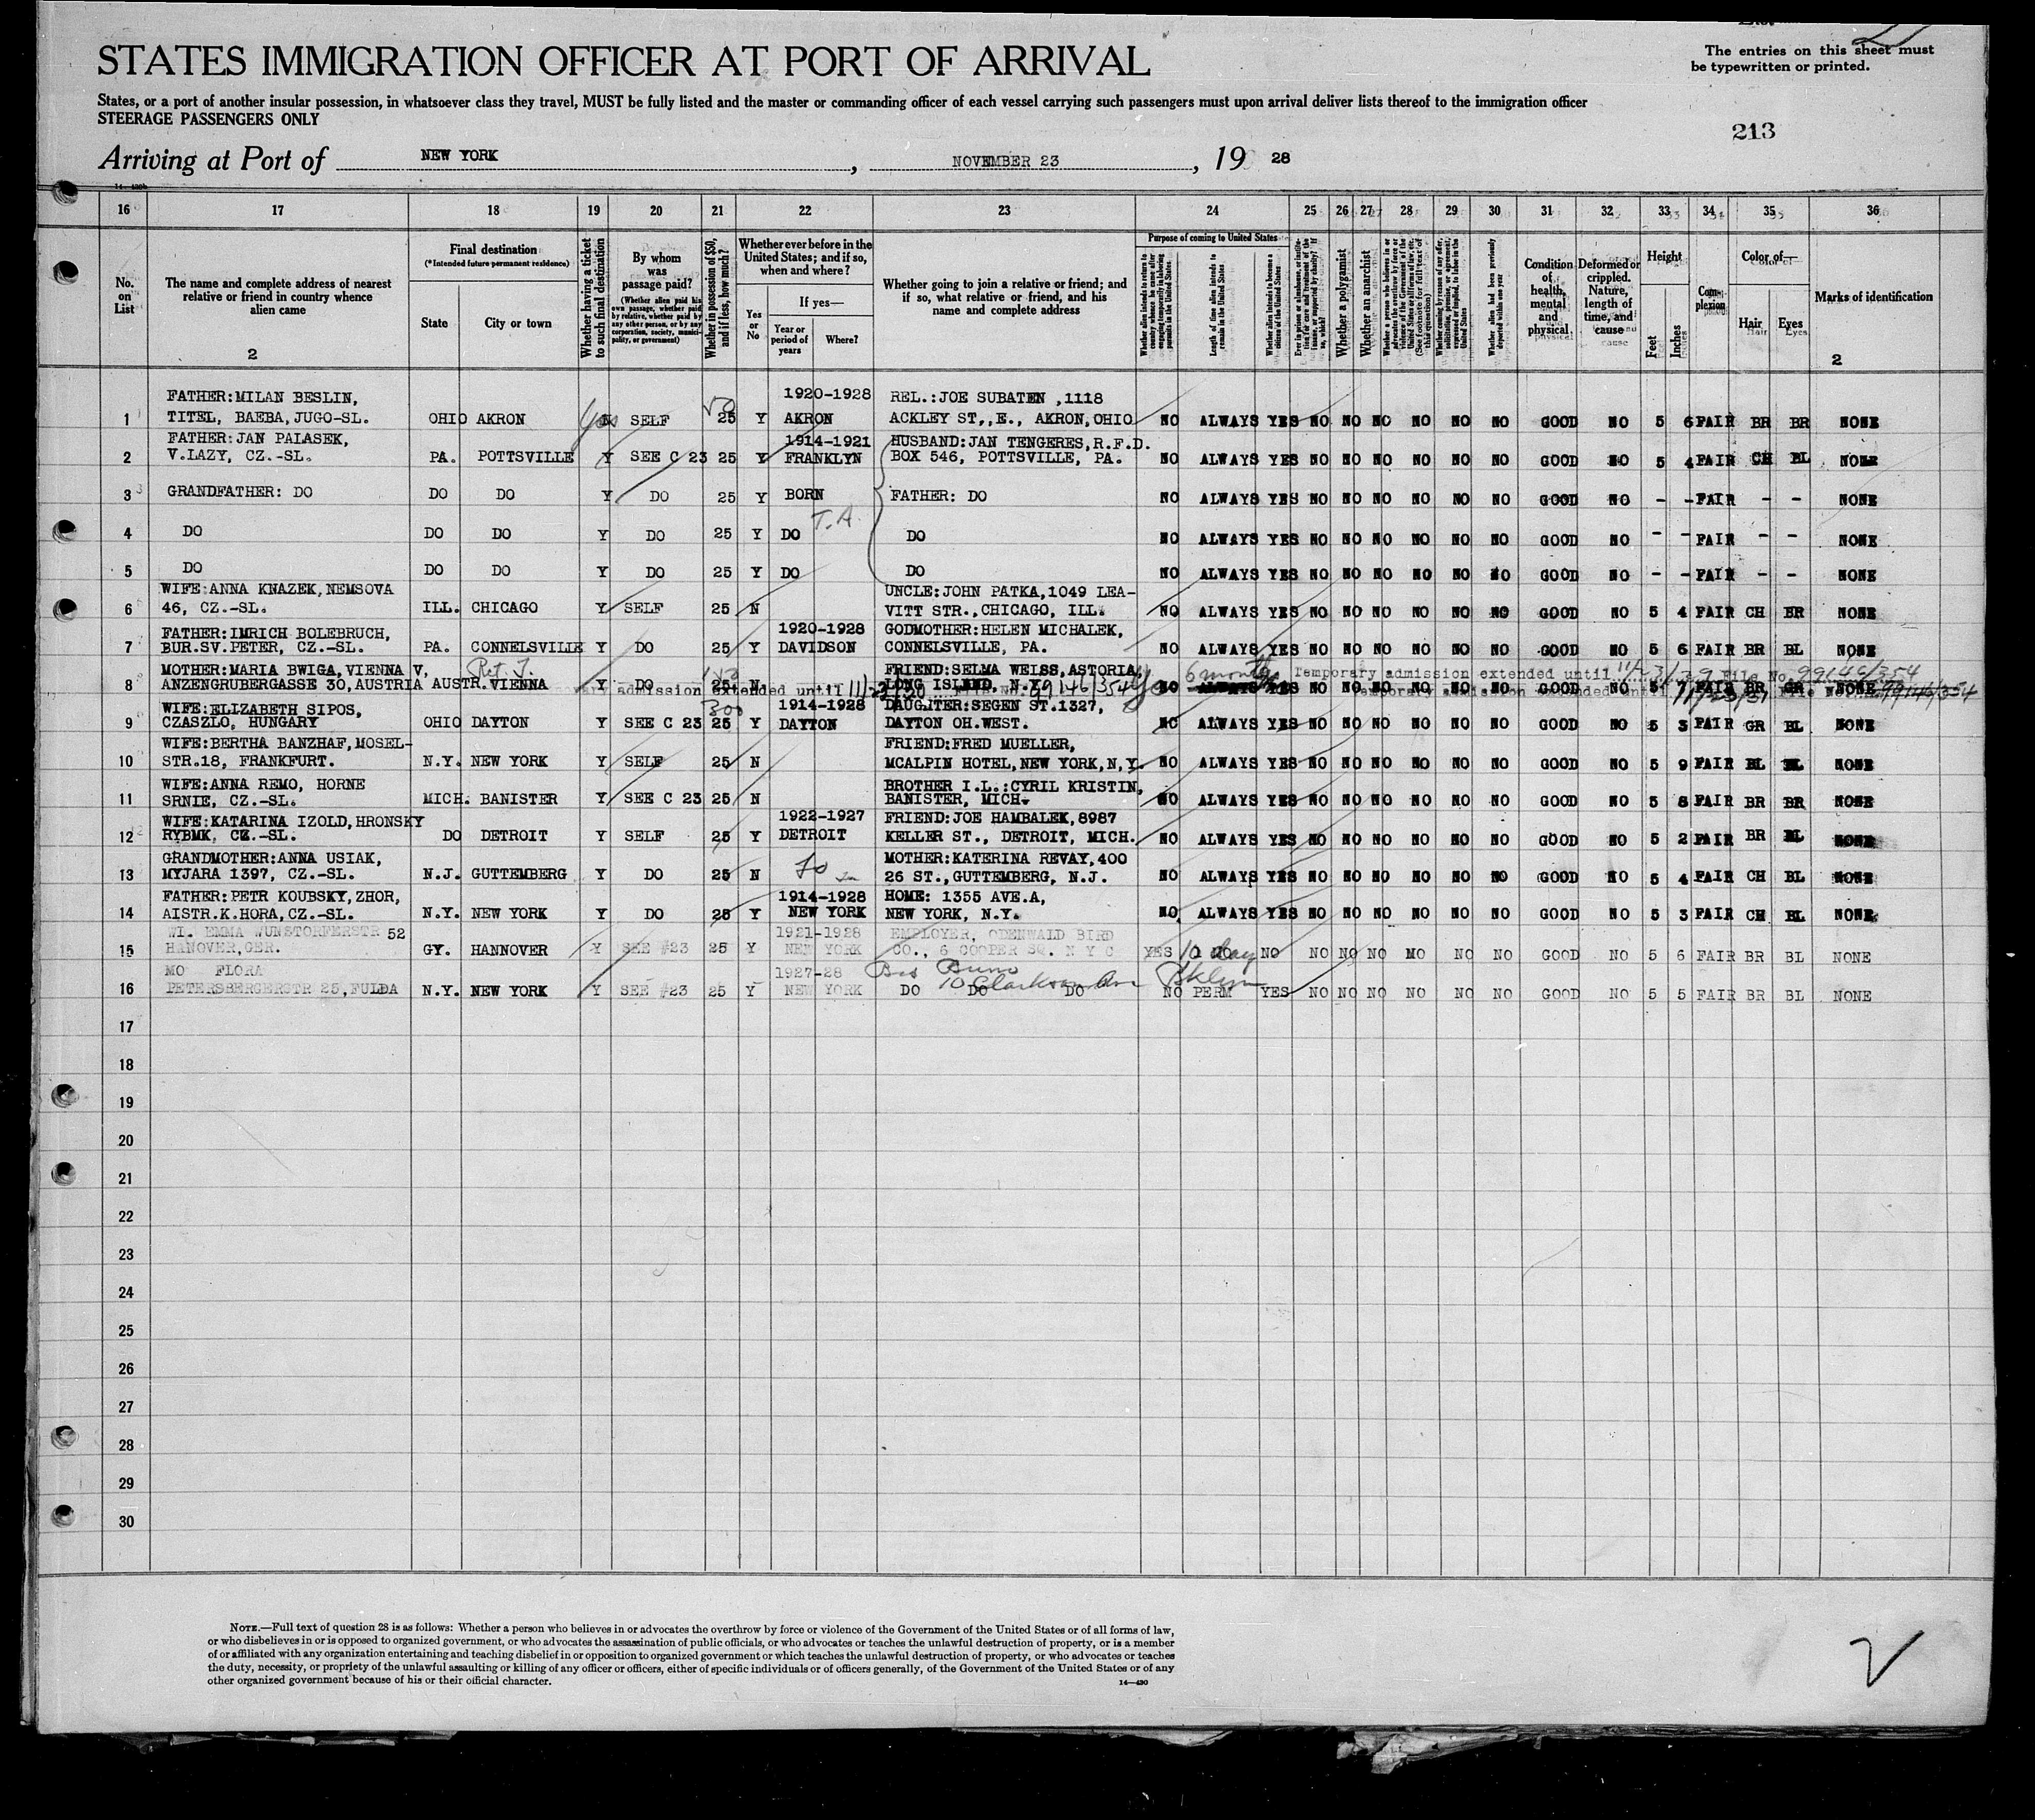 STATES IMMIGRATION OFFICER AT PORT OF ARRIVAL
The entries on this sheet must
be typewritten or printed.
States, or a port of another insular possession, in whatsoever class they travel, MUST be fully listed and the master or commanding officer of each vessel carrying such passengers must upon arrival deliver lists thereof to the immigration officer
STEERAGE PASSENGERS ONLY
213
Arriving at Port of NEW YORK, NOVEMBER 23, 19 28
16 17 18 19 20 21 22 23 24 25 26 27 28 29 30 31 32 33 34 35 36
No. on List
The name and complete address of nearest relative or friend in country whence alien came
2
Final destination
(*Intended future permanent residence)
State
City or town
Whether having a ticket to such final destination
By whom was passage paid?
(Whether alien paid his own passage, whether paid by relative, whether paid by any other person, or by any corporation, society, municipality, or government)
Whether in possession of $50, and if less, how much?
Whether ever before in the United States; and if so, when and where?
Yes or No
If yes—
Year or period of years
Where?
Whether going to join a relative or friend; and if so, what relative or friend, and his name and complete address
Purpose of coming to United States
Length of time alien intends to remain in the United States
Whether alien intends to become a citizen of the United States
Whether a polygamist
Whether an anarchist
Condition of health, mental and physical
Deformed or crippled. Nature, length of time, and cause
Height
Feet
Inches
Complexion
Color of—
Hair
Eyes
Marks of identification
2
1 FATHER:MILAN BESLIN, TITEL, BAEBA, JUGO-SL. OHIO AKRON Yes SELF 50 25 Y 1920-1928 AKRON REL.: JOE SUBATEN ,1118 ACKLEY ST,,E., AKRON,OHIO NO ALWAYS YES NO NO NO NO NO NO GOOD NO 5 6 FAIR BR BR NONE
2 FATHER: JAN PALASEK, V.LAZY, CZ.-SL. PA. POTTSVILLE Y SEE C 23 25 Y 1914-1921 FRANKLYN HUSBAND: JAN TENGERES, R.F.D. BOX 546, POTTSVILLE, PA. NO ALWAYS YES NO NO NO NO NO NO GOOD NO 5 4 FAIR CH BL NONE
3 GRANDFATHER: DO DO DO Y DO 25 Y BORN FATHER: DO NO ALWAYS YES NO NO NO NO NO NO GOOD NO - - FAIR - - NONE
4 DO DO DO Y DO 25 Y DO T.A. DO NO ALWAYS YES NO NO NO NO NO NO GOOD NO - - FAIR - - NONE
5 DO DO DO Y DO 25 Y DO DO NO ALWAYS YES NO NO NO NO NO NO GOOD NO - - FAIR - - NONE
6 WIFE:ANNA KNAZEK, NEMSOVA 46, CZ.-SL. ILL. CHICAGO Y SELF 25 N UNCLE: JOHN PATKA, 1049 LEAVITT STR., CHICAGO, ILL. NO ALWAYS YES NO NO NO NO NO NO GOOD NO 5 4 FAIR CH BR NONE
7 FATHER: IMRICH BOLEBRUCH, BUR.SV.PETER, CZ.-SL. PA. CONNELSVILLE Y DO 25 Y 1920-1928 DAVIDSON GODMOTHER: HELEN MICHALEK, CONNELSVILLE, PA. NO ALWAYS YES NO NO NO NO NO NO GOOD NO 5 6 FAIR BR BL NONE
8 MOTHER: MARIA BWIGA, VIENNA V, ANZENGRUBERGASSE 30, AUSTRIA AUSTR. VIENNA Ret. T. Y DO 25 N FRIEND: SELMA WEISS, ASTORIA LONG ISLAND, N.Y. 6 months ALWAYS YES NO NO NO NO NO NO GOOD NO 5 7 FAIR BR GR NONE
admission extended until 11/23/30 File No. 99146/354
Temporary admission extended until 11/23/29 File No. 99146/354
Temporary admission extended until 11/23/31 File No. 99146/354
9 WIFE: ELIZABETH SIPOS, CZASZLO, HUNGARY OHIO DAYTON Y SEE C 23 300 25 Y 1914-1928 DAYTON DAUGHTER: SEGEN ST.1327, DAYTON OH.WEST. NO ALWAYS YES NO NO NO NO NO NO GOOD NO 5 3 FAIR GR BL NONE
10 WIFE: BERTHA BANZHAF, MOSEL-STR.18, FRANKFURT. N.Y. NEW YORK Y SELF 25 N FRIEND: FRED MUELLER, MCALPIN HOTEL, NEW YORK, N.Y. NO ALWAYS YES NO NO NO NO NO NO GOOD NO 5 9 FAIR BL BL NONE
11 WIFE: ANNA REMO, HORNE SRNIE, CZ.-SL. MICH. BANISTER Y SEE C 23 25 N BROTHER I.L.: CYRIL KRISTIN, BANISTER, MICH. NO ALWAYS YES NO NO NO NO NO NO GOOD NO 5 8 FAIR BR BR NONE
12 WIFE: KATARINA IZOLD, HRONSKY RYBMK, CZ.-SL. DO DETROIT Y SELF 25 Y 1922-1927 DETROIT FRIEND: JOE HAMBALEK, 8987 KELLER ST., DETROIT, MICH. NO ALWAYS YES NO NO NO NO NO NO GOOD NO 5 2 FAIR BR BL NONE
13 GRANDMOTHER: ANNA USIAK, MYJARA 1397, CZ.-SL. N.J. GUTTEMBERG Y DO 25 N MOTHER: KATERINA REVAY, 400 26 ST., GUTTEMBERG, N.J. NO ALWAYS YES NO NO NO NO NO NO GOOD NO 5 4 FAIR CH BL NONE
14 FATHER: PETR KOUBSKY, ZHOR, AISTR.K.HORA, CZ.-SL. N.Y. NEW YORK Y DO 25 Y 1914-1928 NEW YORK HOME: 1355 AVE.A, NEW YORK, N.Y. NO ALWAYS YES NO NO NO NO NO NO GOOD NO 5 3 FAIR CH BL NONE
15 WI. EMMA WUNSTORFERSTR 52 HANOVER, GER. GY. HANNOVER Y SEE #23 25 Y 1921-1928 NEW YORK EMPLOYER, ODENWALD BIRD CO., 6 COOPER SQ. N Y C YES 10 day NO NO NO NO MO NO NO GOOD NO 5 6 FAIR BR BL NONE
16 MO FLORA PETERSBERGERSTR 25, FULDA N.Y. NEW YORK Y SEE #23 25 Y 1927-28 NEW YORK Bro Bruno 10 Clarkson Ave Bklyn DO DO DO NO PERM YES NO NO NO NO NO NO GOOD NO 5 5 FAIR BR BL NONE
17
18
19
20
21
22
23
24
25
26
27
28
29
30
NOTE.—Full text of question 28 is as follows: Whether a person who believes in or advocates the overthrow by force or violence of the Government of the United States or of all forms of law,
or who disbelieves in or is opposed to organized government, or who advocates the assassination of public officials, or who advocates or teaches the unlawful destruction of property, or is a member
of or affiliated with any organization entertaining and teaching disbelief in or opposition to organized government or which teaches the unlawful destruction of property, or who advocates or teaches
the duty, necessity, or propriety of the unlawful assaulting or killing of any officer or officers, either of specific individuals or of officers generally, of the Government of the United States or of any
other organized government because of his or their official character.
14—430